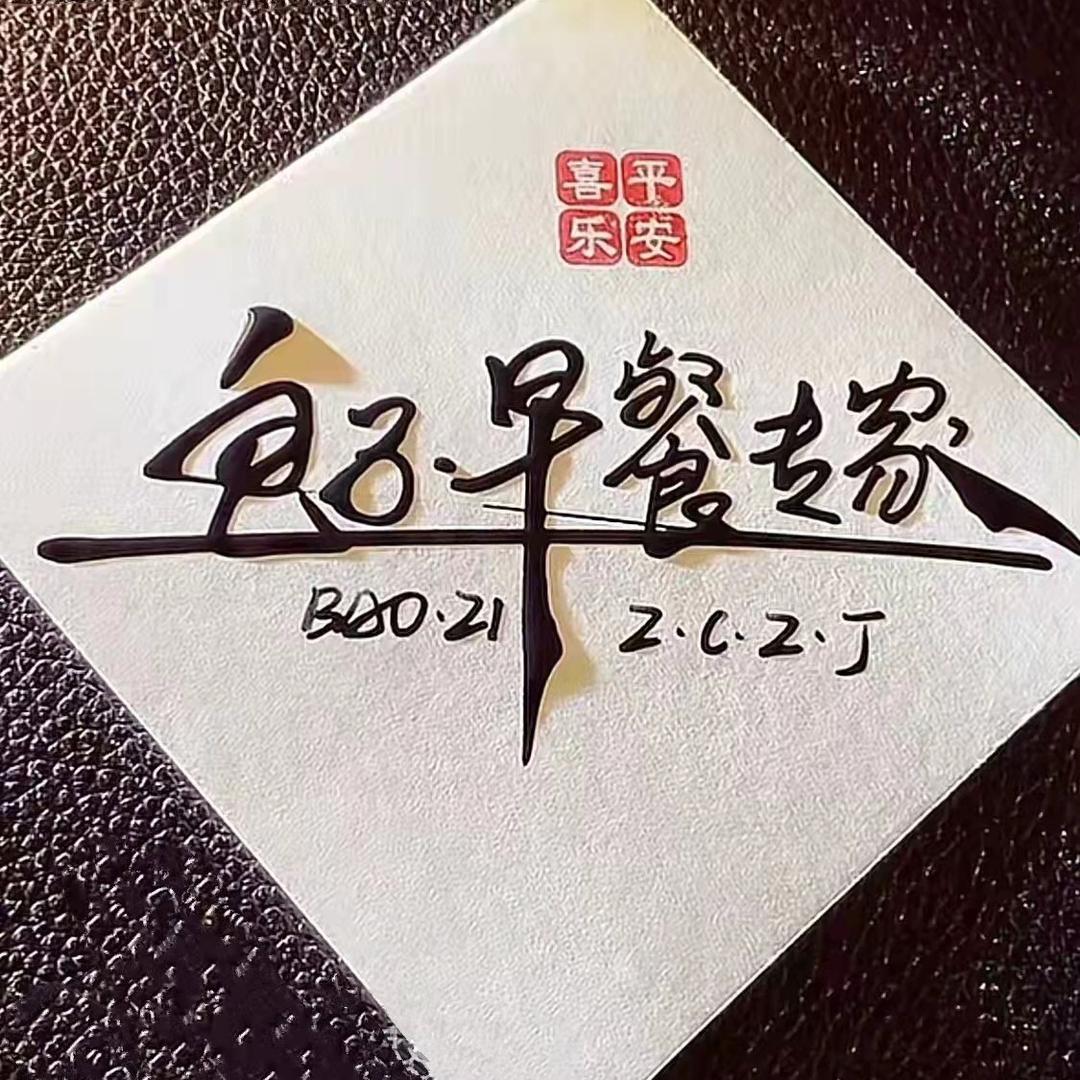 平安
喜乐
包子·早餐专家
BAO·ZI Z·C·Z·J